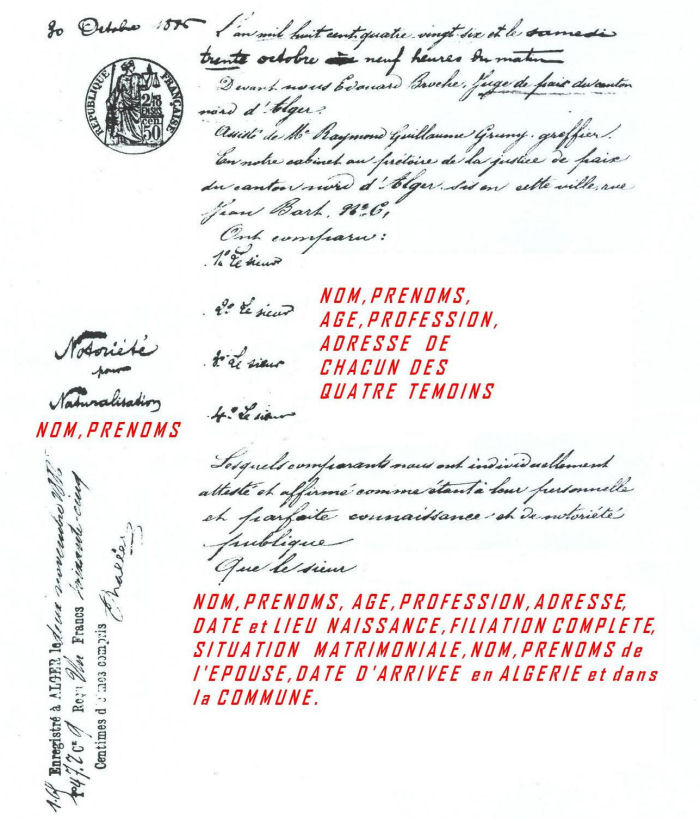 30 Octobre 1886
RÉPUBLIQUE FRANÇAISE
2/10
EN SUS
50
L'an mil huit cent quatre-vingt-six et le samedi
trente octobre à neuf heures du matin
Devant nous Edouard Broche, Juge de paix du canton
nord d'Alger.
Assisté de Me Raymond Guillaume Grumy, greffier.
En notre cabinet au prétoire de la justice de paix
du canton nord d'Alger, sis en cette ville, rue
Jean Bart, No 6,
Ont comparu :
1o Le sieur
2o Le sieur
3o Le sieur
4o Le sieur
NOM, PRENOMS,
AGE, PROFESSION,
ADRESSE DE
CHACUN DES
QUATRE TEMOINS
Notoriété
pour
Naturalisation
NOM, PRENOMS
Lesquels comparants nous ont individuellement
attesté et affirmé comme étant à leur personnelle
et parfaite connaissance et de notoriété
publique
Que le sieur
NOM, PRENOMS, AGE, PROFESSION, ADRESSE,
DATE et LIEU NAISSANCE, FILIATION COMPLETE,
SITUATION MATRIMONIALE, NOM, PRENOMS de
l'EPOUSE, DATE D'ARRIVEE en ALGERIE et dans
la COMMUNE.
Enregistré à ALGER le deux novembre 1886
Fo 47, 2 Ce 9 Reçu Un Francs
Centimes décimes compris